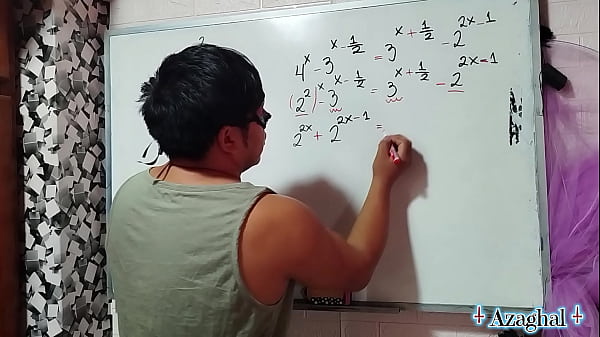 4^x - 3^(x - 1/2) = 3^(x + 1/2) - 2^(2x - 1)
(2^2)^x - 3^(x - 1/2) = 3^(x + 1/2) - 2^(2x - 1)
2^(2x) + 2^(2x - 1) =
Azaghal